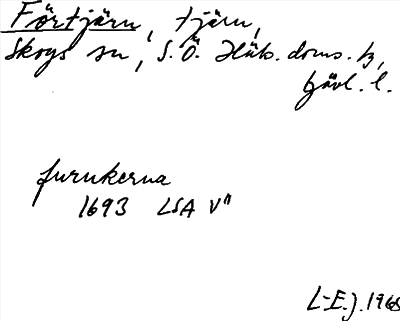 Förtjärn, tjärn,
Skogs sn, S.Ö. Häls. doms. tg,
Gävl. l.
furukerna
1693 LSA V"
L-E.J. 1968